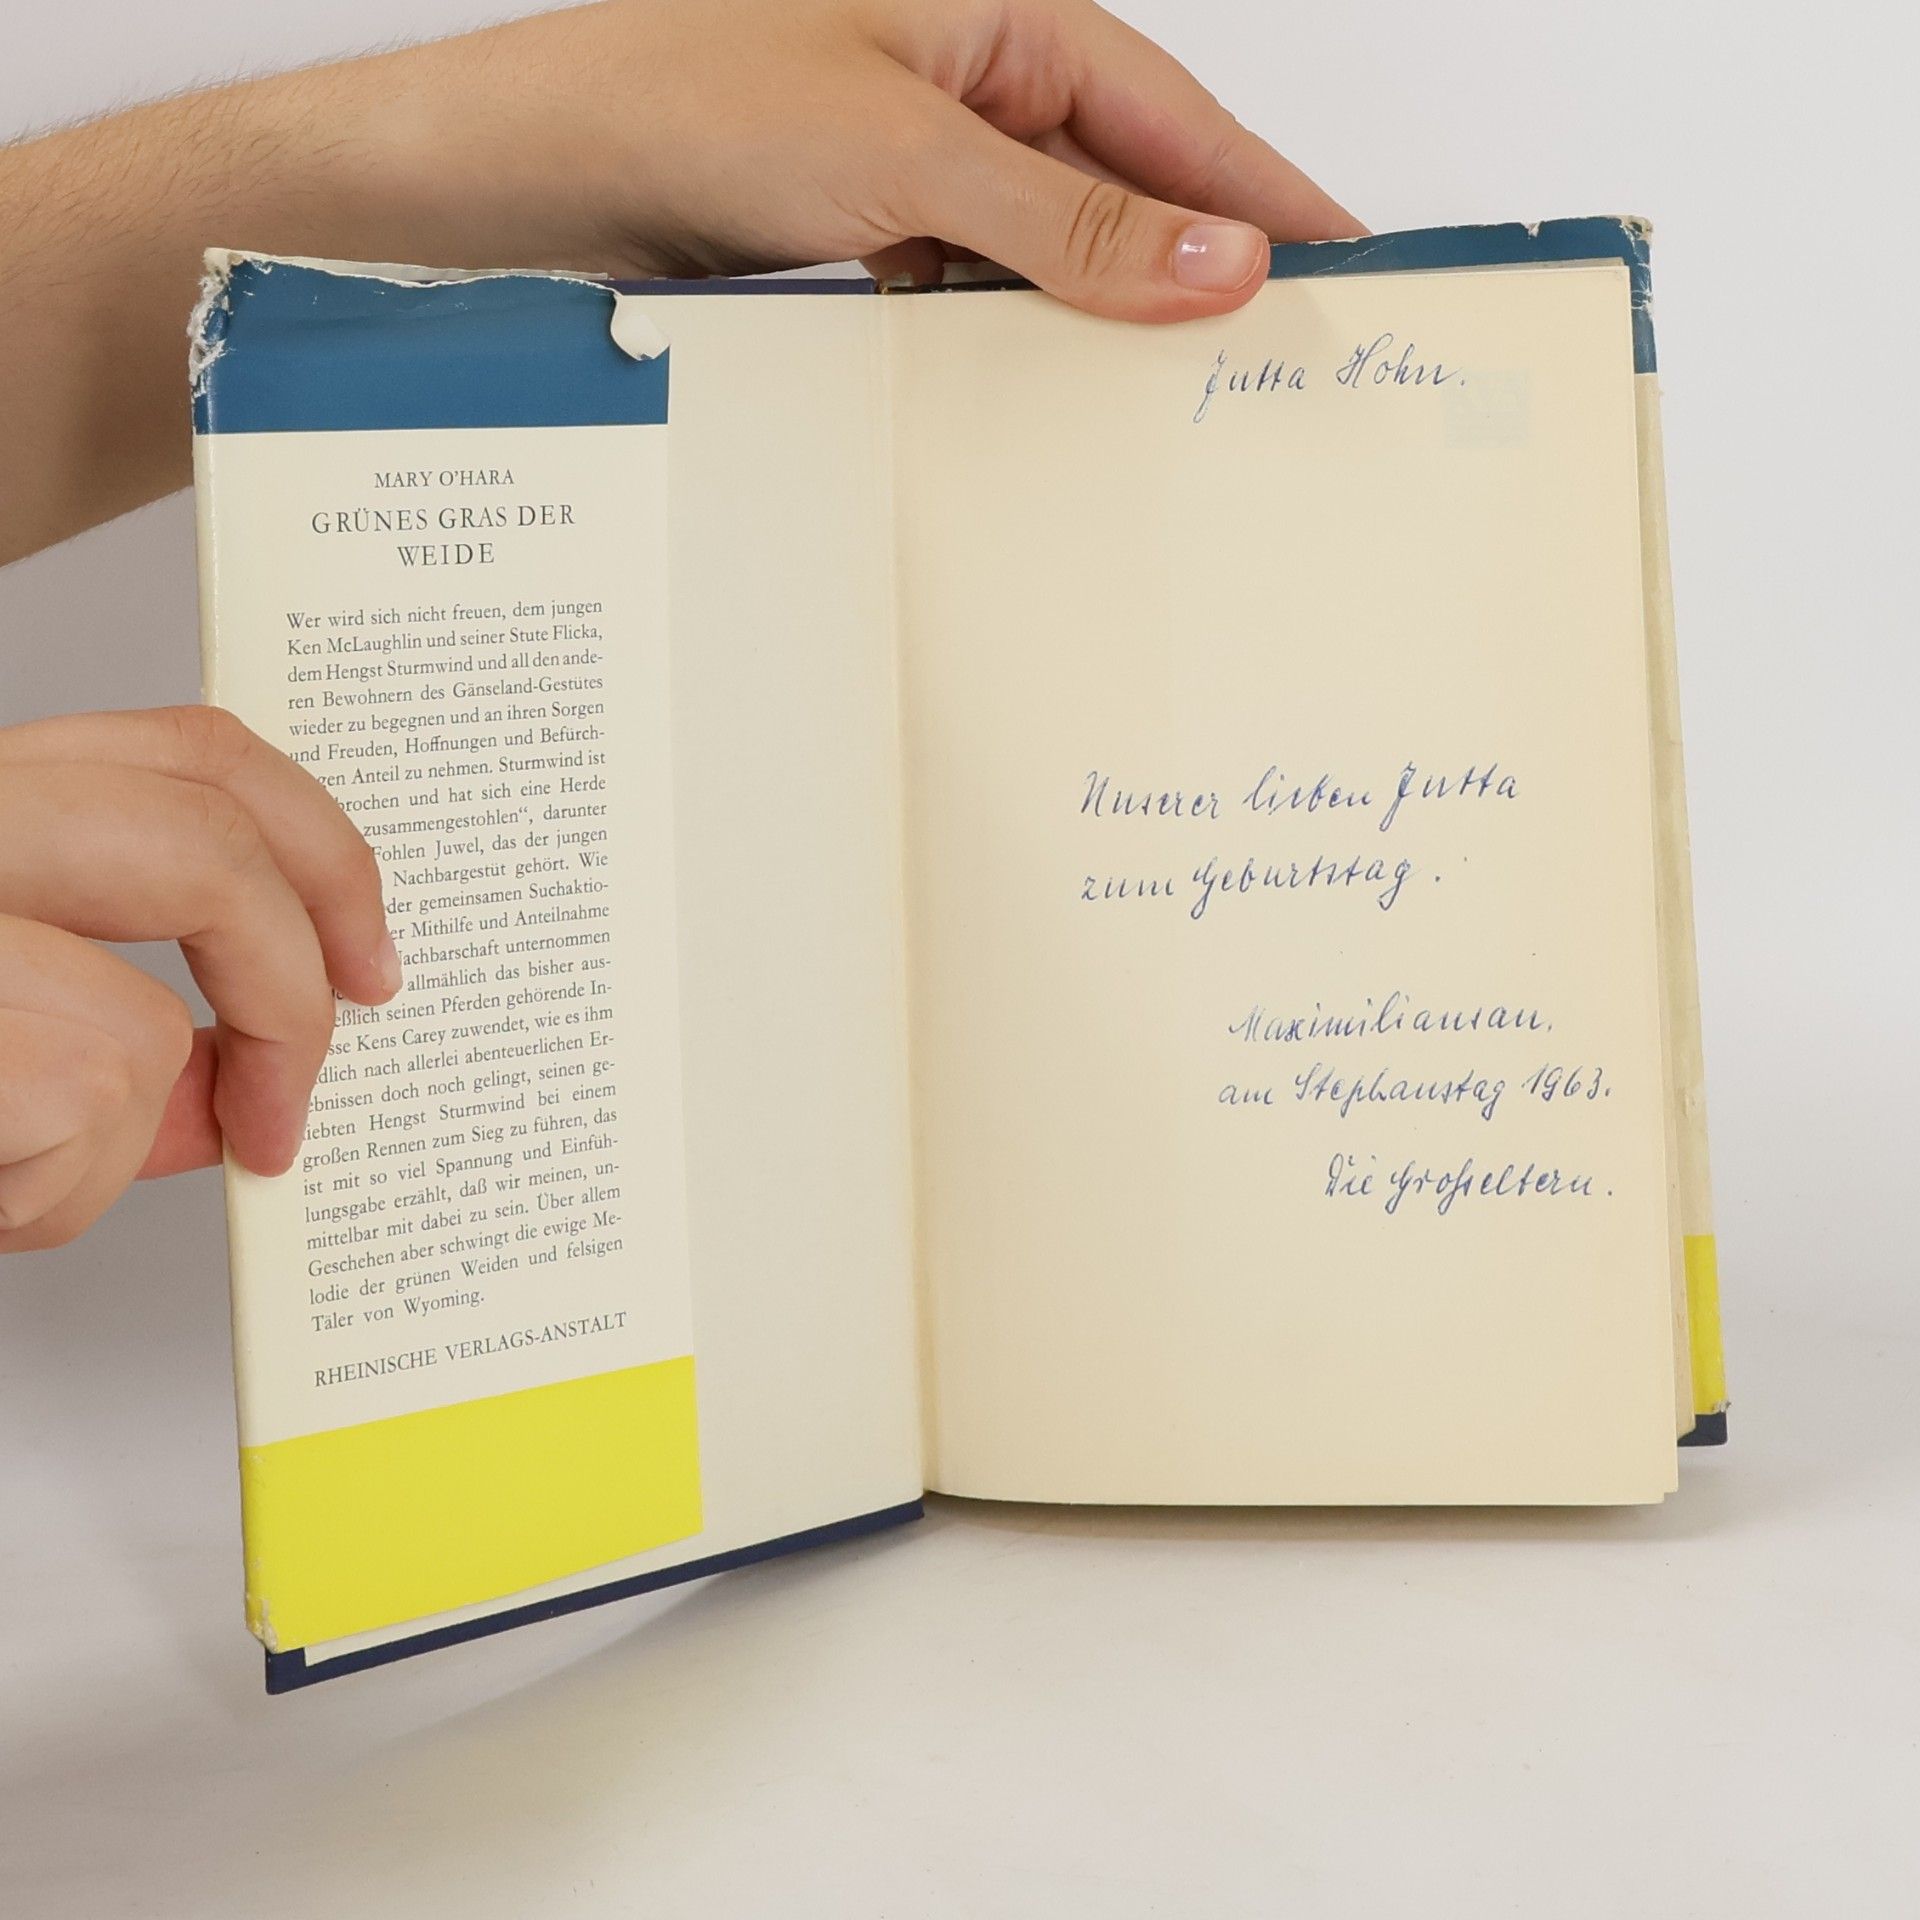 MARY O'HARA
GRÜNES GRAS DER
WEIDE
Wer wird sich nicht freuen, dem jungen
Ken McLaughlin und seiner Stute Flicka,
dem Hengst Sturmwind und all den ande-
ren Bewohnern des Gänseland-Gestütes
wieder zu begegnen und an ihren Sorgen
und Freuden, Hoffnungen und Befürch-
gen Anteil zu nehmen. Sturmwind ist
brochen und hat sich eine Herde
zusammengestohlen“, darunter
Fohlen Juwel, das der jungen
Nachbargestüt gehört. Wie
der gemeinsamen Suchaktio-
er Mithilfe und Anteilnahme
Nachbarschaft unternommen
allmählich das bisher aus-
eßlich seinen Pferden gehörende In-
sse Kens Carey zuwendet, wie es ihm
dlich nach allerlei abenteuerlichen Er-
ebnissen doch noch gelingt, seinen ge-
liebten Hengst Sturmwind bei einem
großen Rennen zum Sieg zu führen, das
ist mit so viel Spannung und Einfüh-
lungsgabe erzählt, daß wir meinen, un-
mittelbar mit dabei zu sein. Über allem
Geschehen aber schwingt die ewige Me-
lodie der grünen Weiden und felsigen
Täler von Wyoming.
RHEINISCHE VERLAGS-ANSTALT
Jutta Hohn.
Unserer lieben Jutta
zum Geburtstag.
Maximiliansau,
am Stephanstag 1963.
Die Großeltern.